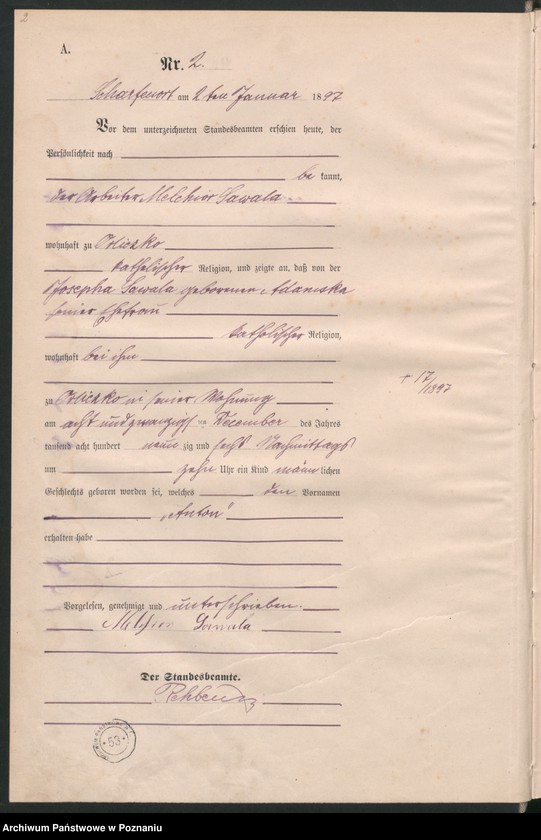 2
A.
Nr. 2.
Scharfenort am 2ten Januar 1897
Vor dem unterzeichneten Standesbeamten erschien heute, der
Persönlichkeit nach
be kannt,
der Arbeiter Melchior Sawala
wohnhaft zu Orliczko
katholischer Religion, und zeigte an, daß von der
Josepha Sawala geborenen Adamska
seiner Ehefrau
katholischer Religion,
wohnhaft bei ihm
zu Orliczko in seiner Wohnung
am acht und zwanzigsten December des Jahres
tausend acht hundert neun zig und sechs Nachmittags
um zehn Uhr ein Kind männ lichen
Geschlechts geboren worden sei, welches den Vornamen
„Anton"
erhalten habe
Vorgelesen, genehmigt und unterschrieben.
Melchior Sawala
Der Standesbeamte.
+ 17/1897
53
Archiwum Państwowe w Poznaniu